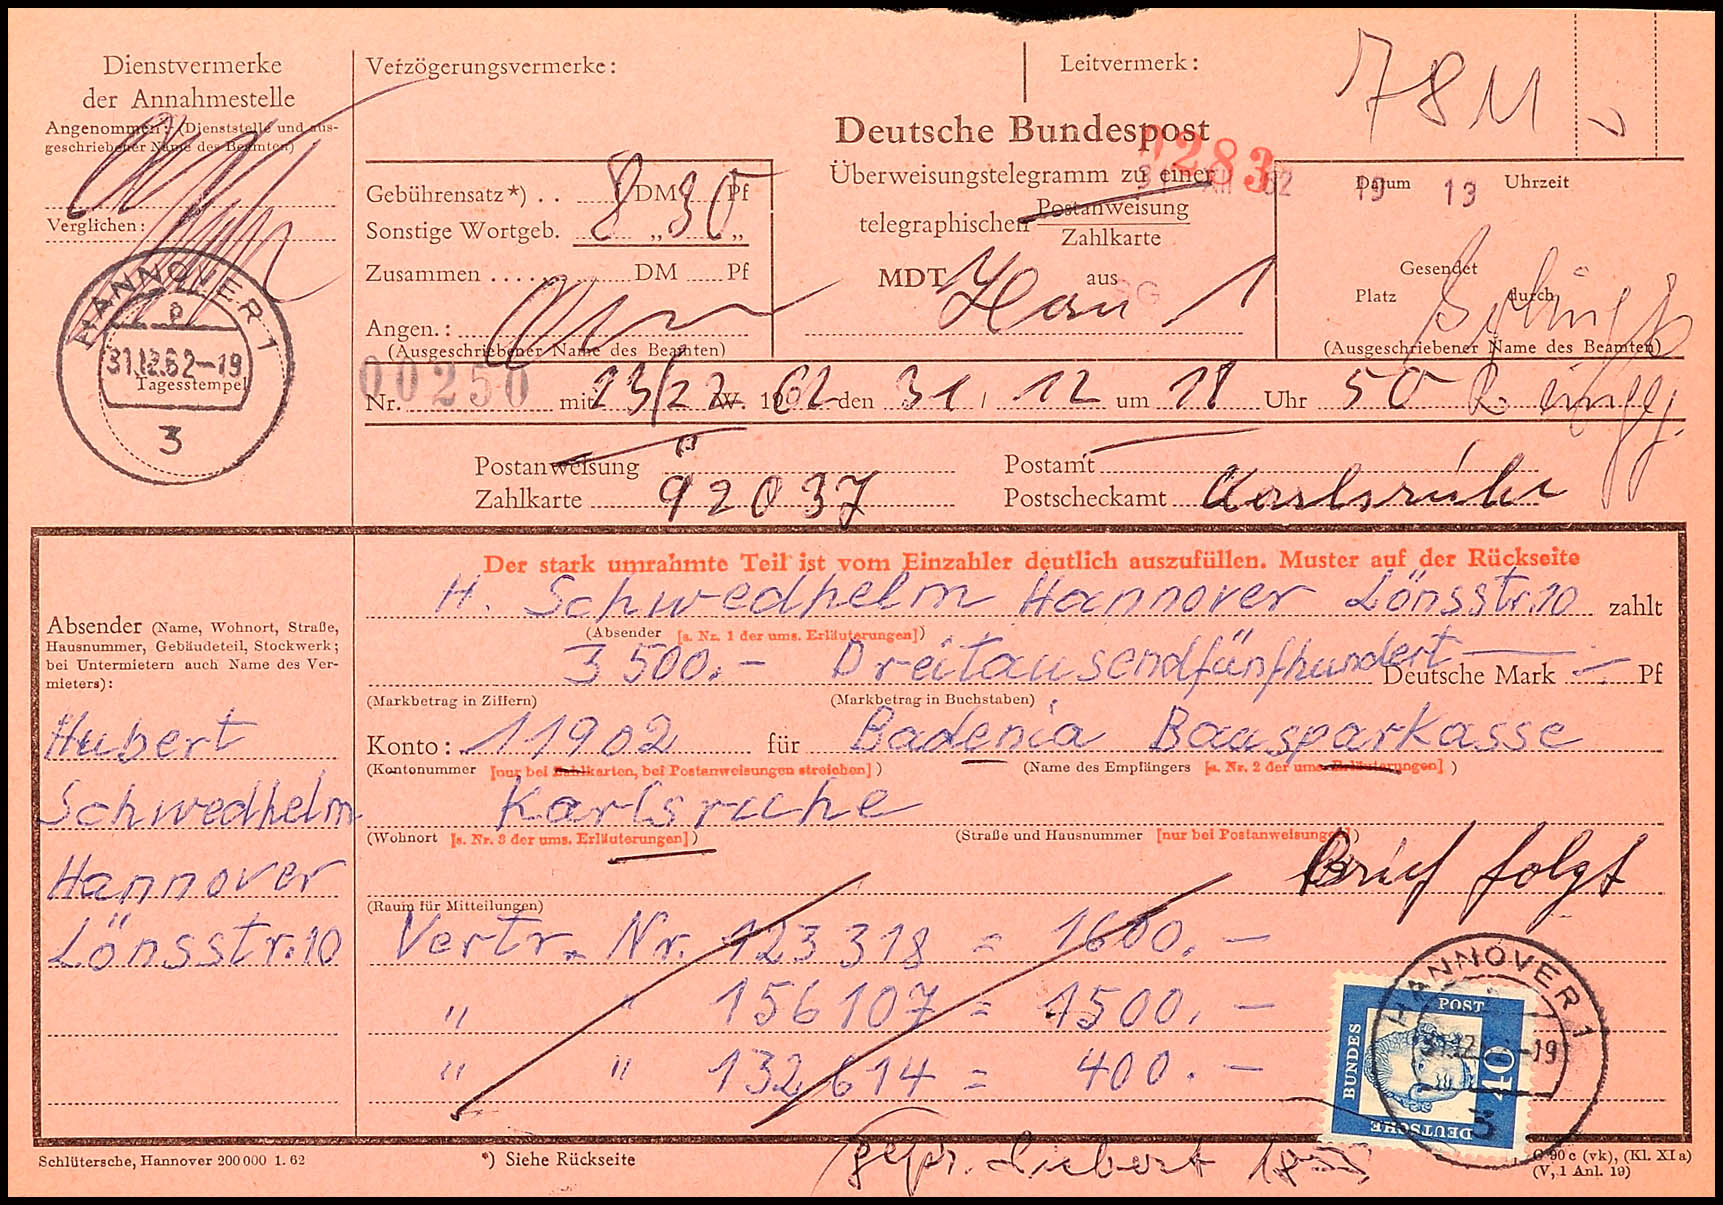 Dienstvermerke
der Annahmestelle
Angenommen: (Dienststelle und aus-
geschriebener Name des Beamten)
Verglichen:
HANNOVER 1
a
31.12.62-19
Tagesstempel
3
Verzögerungsvermerke:
Leitvermerk:
Gebührensatz*) . . 8 DM 30 Pf
Sonstige Wortgeb. „ „
Zusammen DM Pf
Angen.:
(Ausgeschriebener Name des Beamten)
Deutsche Bundespost
0283
Überweisungstelegramm zu einer
telegraphischen Postanweisung
Zahlkarte
MDT aus
Han 1
Datum Uhrzeit
19 13
Gesendet
Platz durch
(Ausgeschriebener Name des Beamten)
Nr. 00250 mit 23/22 W. 1962 den 31 / 12 um 18 Uhr 50
Postanweisung
Postamt
Zahlkarte 92037
Postscheckamt Karlsruhe
Der stark umrahmte Teil ist vom Einzahler deutlich auszufüllen. Muster auf der Rückseite
Absender (Name, Wohnort, Straße,
Hausnummer, Gebäudeteil, Stockwerk;
bei Untermietern auch Name des Ver-
mieters):
Hubert
Schwedhelm
Hannover
Lönsstr. 10
H. Schwedhelm Hannover Lönsstr. 10 zahlt
(Absender [s. Nr. 1 der ums. Erläuterungen])
3500.- Dreitausendfünfhundert — Deutsche Mark — Pf
(Markbetrag in Ziffern) (Markbetrag in Buchstaben)
Konto: 11902 für Badenia Bausparkasse
(Kontonummer [nur bei Zahlkarten, bei Postanweisungen streichen]) (Name des Empfängers [s. Nr. 2 der ums. Erläuterungen])
Karlsruhe
(Wohnort [s. Nr. 3 der ums. Erläuterungen]) (Straße und Hausnummer [nur bei Postanweisungen])
Brief folgt
(Raum für Mitteilungen)
Vertr. Nr. 123318 = 1600.-
" " 156107 = 1500.-
" " 132614 = 400.-
DEUTSCHE BUNDESPOST 40
HANNOVER 1
31.12. -19
3
Schlütersche, Hannover 200000 1. 62
*) Siehe Rückseite
gepr.
C 90 c (vk), (Kl. XI a)
(V, 1 Anl. 19)